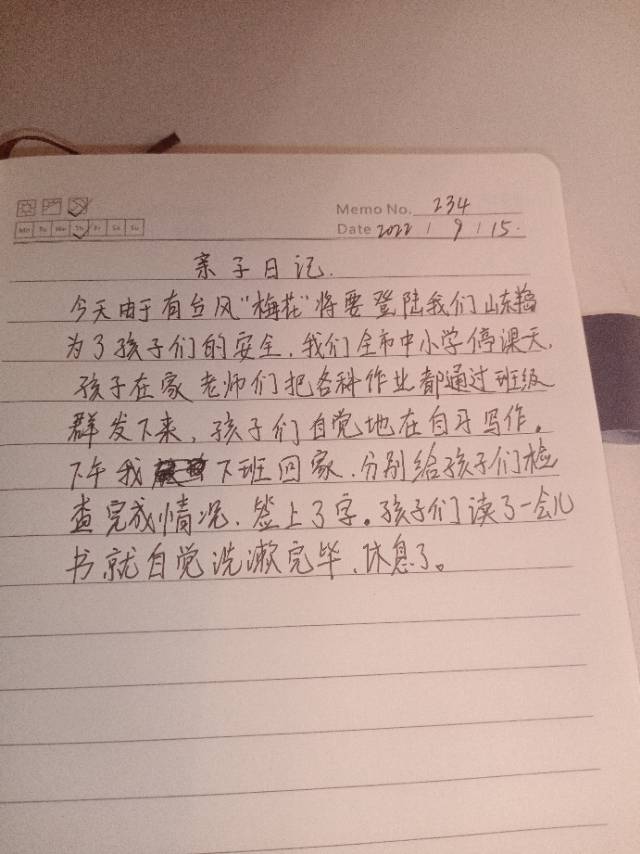 Memo No. 234
Mo Tu We Th Fr Sa Su
Date 2022 / 9 / 15.
亲子日记.
今天由于有台风"梅花"将要登陆我们山东
为了孩子们的安全.我们全市中小学停课一天.
孩子在家 老师们把各科作业都通过班级
群发下来,孩子们自觉地在自习写作。
下午我 下班回家.分别给孩子们检
查完成情况.签上了字。孩子们读了一会儿
书.就自觉洗漱完毕.休息了。